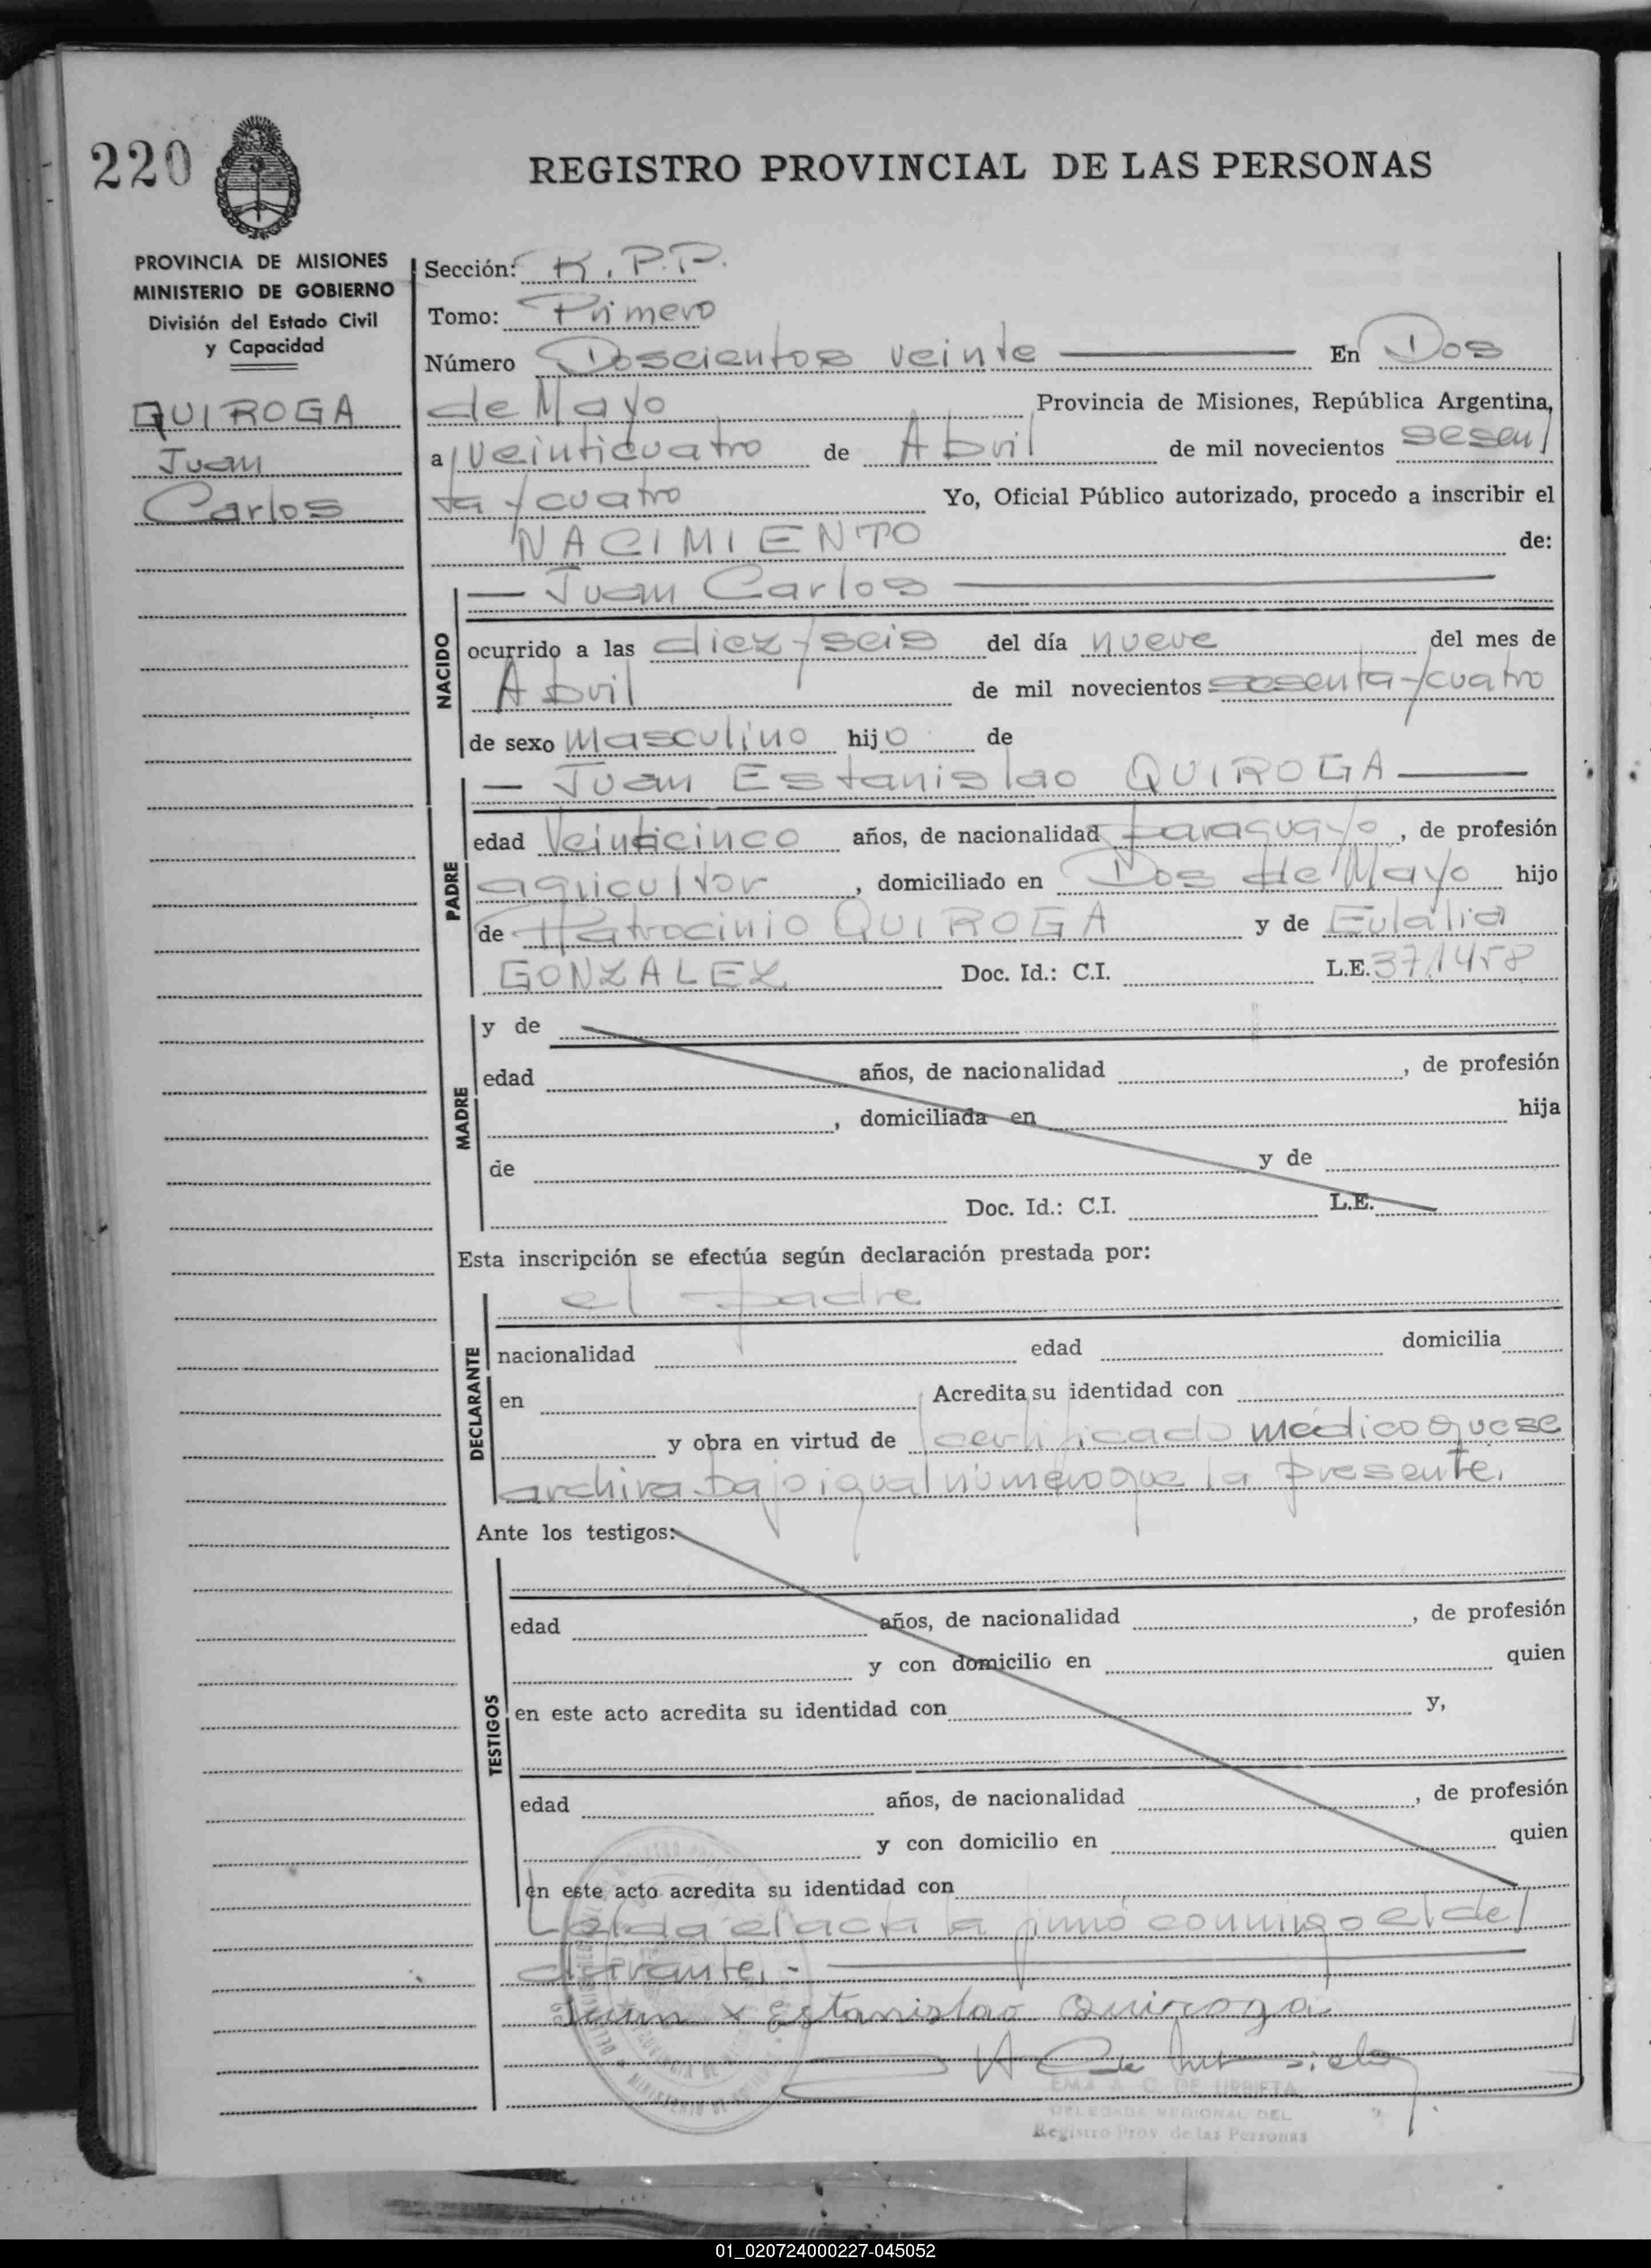 220
REGISTRO PROVINCIAL DE LAS PERSONAS
PROVINCIA DE MISIONES
MINISTERIO DE GOBIERNO
División del Estado Civil
y Capacidad
QUIROGA
Juan
Carlos
Sección: K.P.P.
Tomo: Primero
Número Doscientos veinte En Dos
de Mayo Provincia de Misiones, República Argentina,
a veinticuatro de Abril de mil novecientos sesen/
ta y cuatro Yo, Oficial Público autorizado, procedo a inscribir el
NACIMIENTO de:
NACIDO
— Juan Carlos —
ocurrido a las diez y seis del día nueve del mes de
Abril de mil novecientos sesenta y cuatro
de sexo Masculino hijo de
— Juan Estanislao QUIROGA —
PADRE
edad Veinticinco años, de nacionalidad paraguayo, de profesión
agricultor, domiciliado en Dos de Mayo hijo
de Patrocinio QUIROGA y de Eulalia
GONZALEZ Doc. Id.: C.I. L.E. 371458
MADRE
y de
edad años, de nacionalidad , de profesión
, domiciliada en hija
de y de
Doc. Id.: C.I. L.E.
Esta inscripción se efectúa según declaración prestada por:
DECLARANTE
el padre
nacionalidad edad domicilia
en Acredita su identidad con
y obra en virtud de certificado médico que se
archiva bajo igual número que la presente.
Ante los testigos:
TESTIGOS
edad años, de nacionalidad , de profesión
y con domicilio en quien
en este acto acredita su identidad con y,
edad años, de nacionalidad , de profesión
y con domicilio en quien
en este acto acredita su identidad con
Leída el acta la firmó conmigo el de/
clarante. -
Juan x Estanislao Quiroga
EMA A. C. DE URBIETA
DELEGADA REGIONAL DEL
Registro Prov de las Personas
01_020724000227-045052